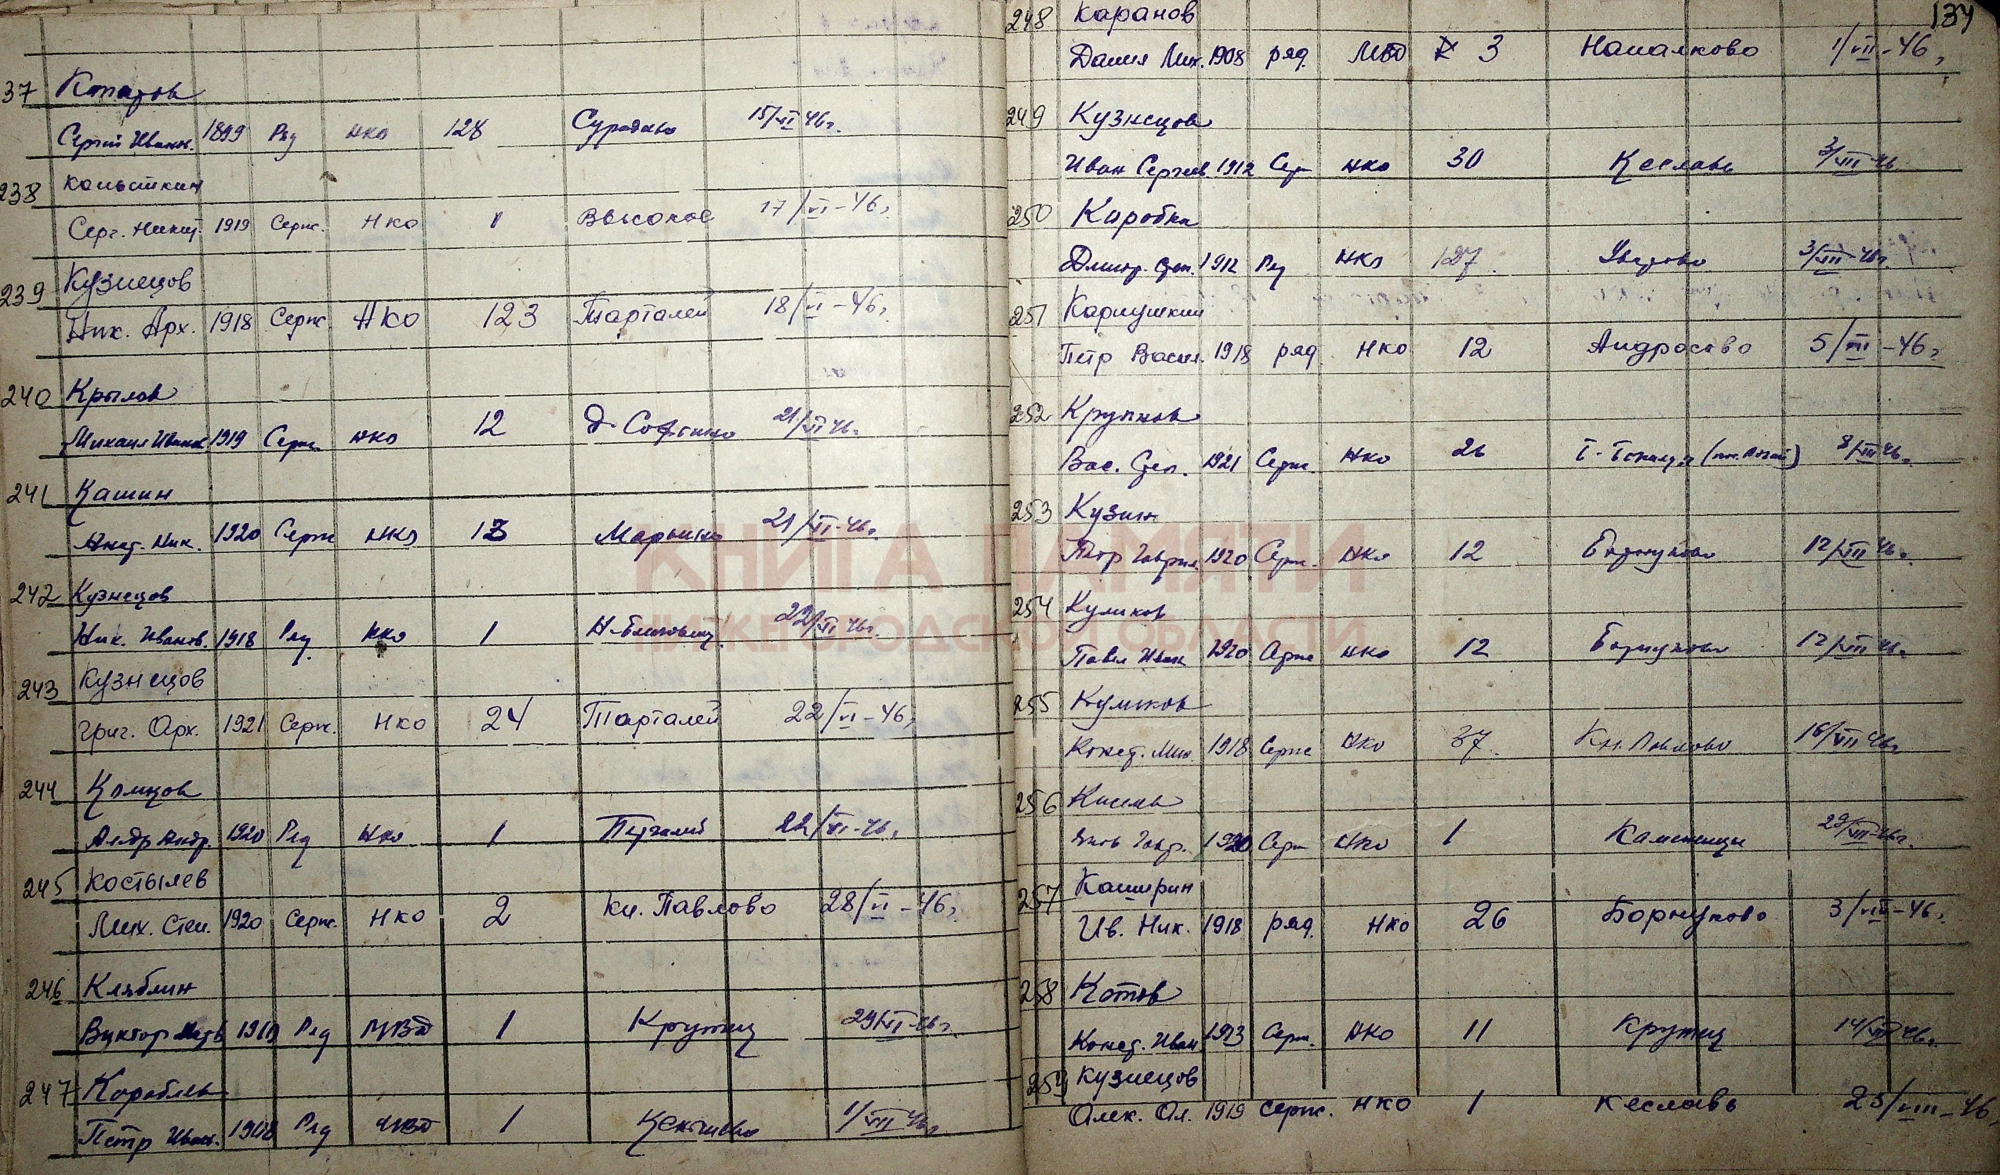 37 Комаров
Сергей Иванов. 1899 Ряд НКО 128 Суродеево 15/VI 46г.
238 Копыткин
Серг. Никит. 1919 Серж. НКО 1 Высокое 17/VI-46г.
239 Кузнецов
Ник. Арх. 1918 Серж. НКО 123 Тарталей 18/VI-46г.
240 Крылов
Михаил Иванов. 1919 Серж. НКО 12 д. Софьино 21/VI 46г.
241 Кашин
Конст. Ник. 1920 Серж НКО 13 Марьино 21/VI-46г.
242 Кузнецов
Ник. Иванов. 1918 Ряд НКО 1 22/VI 46г.
243 Кузнецов
Григ. Арх. 1921 Серж. НКО 24 Тарталей 22/VI-46г.
244 Комков
Алдр Андр. 1920 Ряд НКО 1 22/VI-46г.
245 Костылев
Мих. Степ. 1920 Серж. НКО 2 Кн. Павлово 28/VI-46г.
246 Кляблин
Виктор 1910 Ряд МВД 1 Крутец 29/VI-46г.
247 Кораблев
Петр Иван. 1908 Ряд МВД 1 1/VII 46г.
134
248 Каранов
Данил Мих. 1908 ряд. МВД 3 1/VII-46г.
249 Кузнецов
Иван Сергеев. 1912 Серж НКО 30 Кеславь 3/VII 46
250 Коробки
Дмитр. Степ. 1912 Ряд НКО 127 Уварово 3/VII-46г.
251 Карпушкин
Петр Васил. 1918 ряд. НКО 12 Андросово 5/VII-46г.
252 Крупнов
Вас. Степ. 1921 Серж. НКО 26 8/VII 46г.
253 Кузин
Петр Гаврил. 1920 Серж. НКО 12 Борнуково 12/VII 46г.
254 Куликов
Павел Иван 1920 Серж НКО 12 Борнуково 12/VII 46г.
255 Куликов
Конст. Мих 1918 Серж НКО 37 Кн. Павлово 16/VII 46г.
256 Кисель
Яков 1920 Серж НКО 1 Каменищи 29/VII-46г.
257 Каширин
Ив. Ник. 1918 ряд. НКО 26 Борнуково 3/VIII-46г.
258 Котов
Конст. Иван 1913 Серж. НКО 11 Крутец 14/VIII 46г.
259 Кузнецов
Алек. Ал. 1919 серж. НКО 1 Кеславь 25/VIII-46
КНИГА ПАМЯТИ
НИЖЕГОРОДСКОЙ ОБЛАСТИ